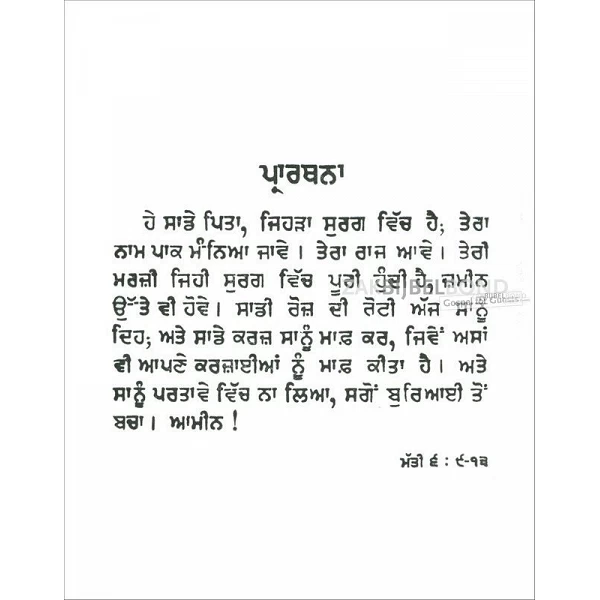 ਪ੍ਰਾਰਥਨਾ
ਹੇ ਸਾਡੇ ਪਿਤਾ, ਜਿਹੜਾ ਸੁਰਗ ਵਿੱਚ ਹੈ; ਤੇਰਾ
ਨਾਮ ਪਾਕ ਮੰਨਿਆ ਜਾਵੇ। ਤੇਰਾ ਰਾਜ ਆਵੇ। ਤੇਰੀ
ਮਰਜ਼ੀ ਜਿਹੀ ਸੁਰਗ ਵਿੱਚ ਪੂਰੀ ਹੁੰਦੀ ਹੈ, ਜ਼ਮੀਨ
ZAKBIJBELBOND
ਉੱਤੇ ਵੀ ਹੋਵੇ। ਸਾਡੀ ਰੋਜ਼ ਦੀ ਰੋਟੀ ਅੱਜ ਸਾਨੂੰ
ਦਿਹ; ਅਤੇ ਸਾਡੇ ਕਰਜ਼ ਸਾਨੂੰ ਮਾਫ਼ ਕਰ, ਜਿਵੇਂ ਅਸਾਂ
ਵੀ ਆਪਣੇ ਕਰਜ਼ਾਈਆਂ ਨੂੰ ਮਾਫ਼ ਕੀਤਾ ਹੈ। ਅਤੇ
ਸਾਨੂੰ ਪਰਤਾਵੇ ਵਿੱਚ ਨਾ ਲਿਆ, ਸਗੋਂ ਬੁਰਿਆਈ ਤੋਂ
ਬਚਾ। ਆਮੀਨ !
ਮੱਤੀ ੬ : ੯-੧੩